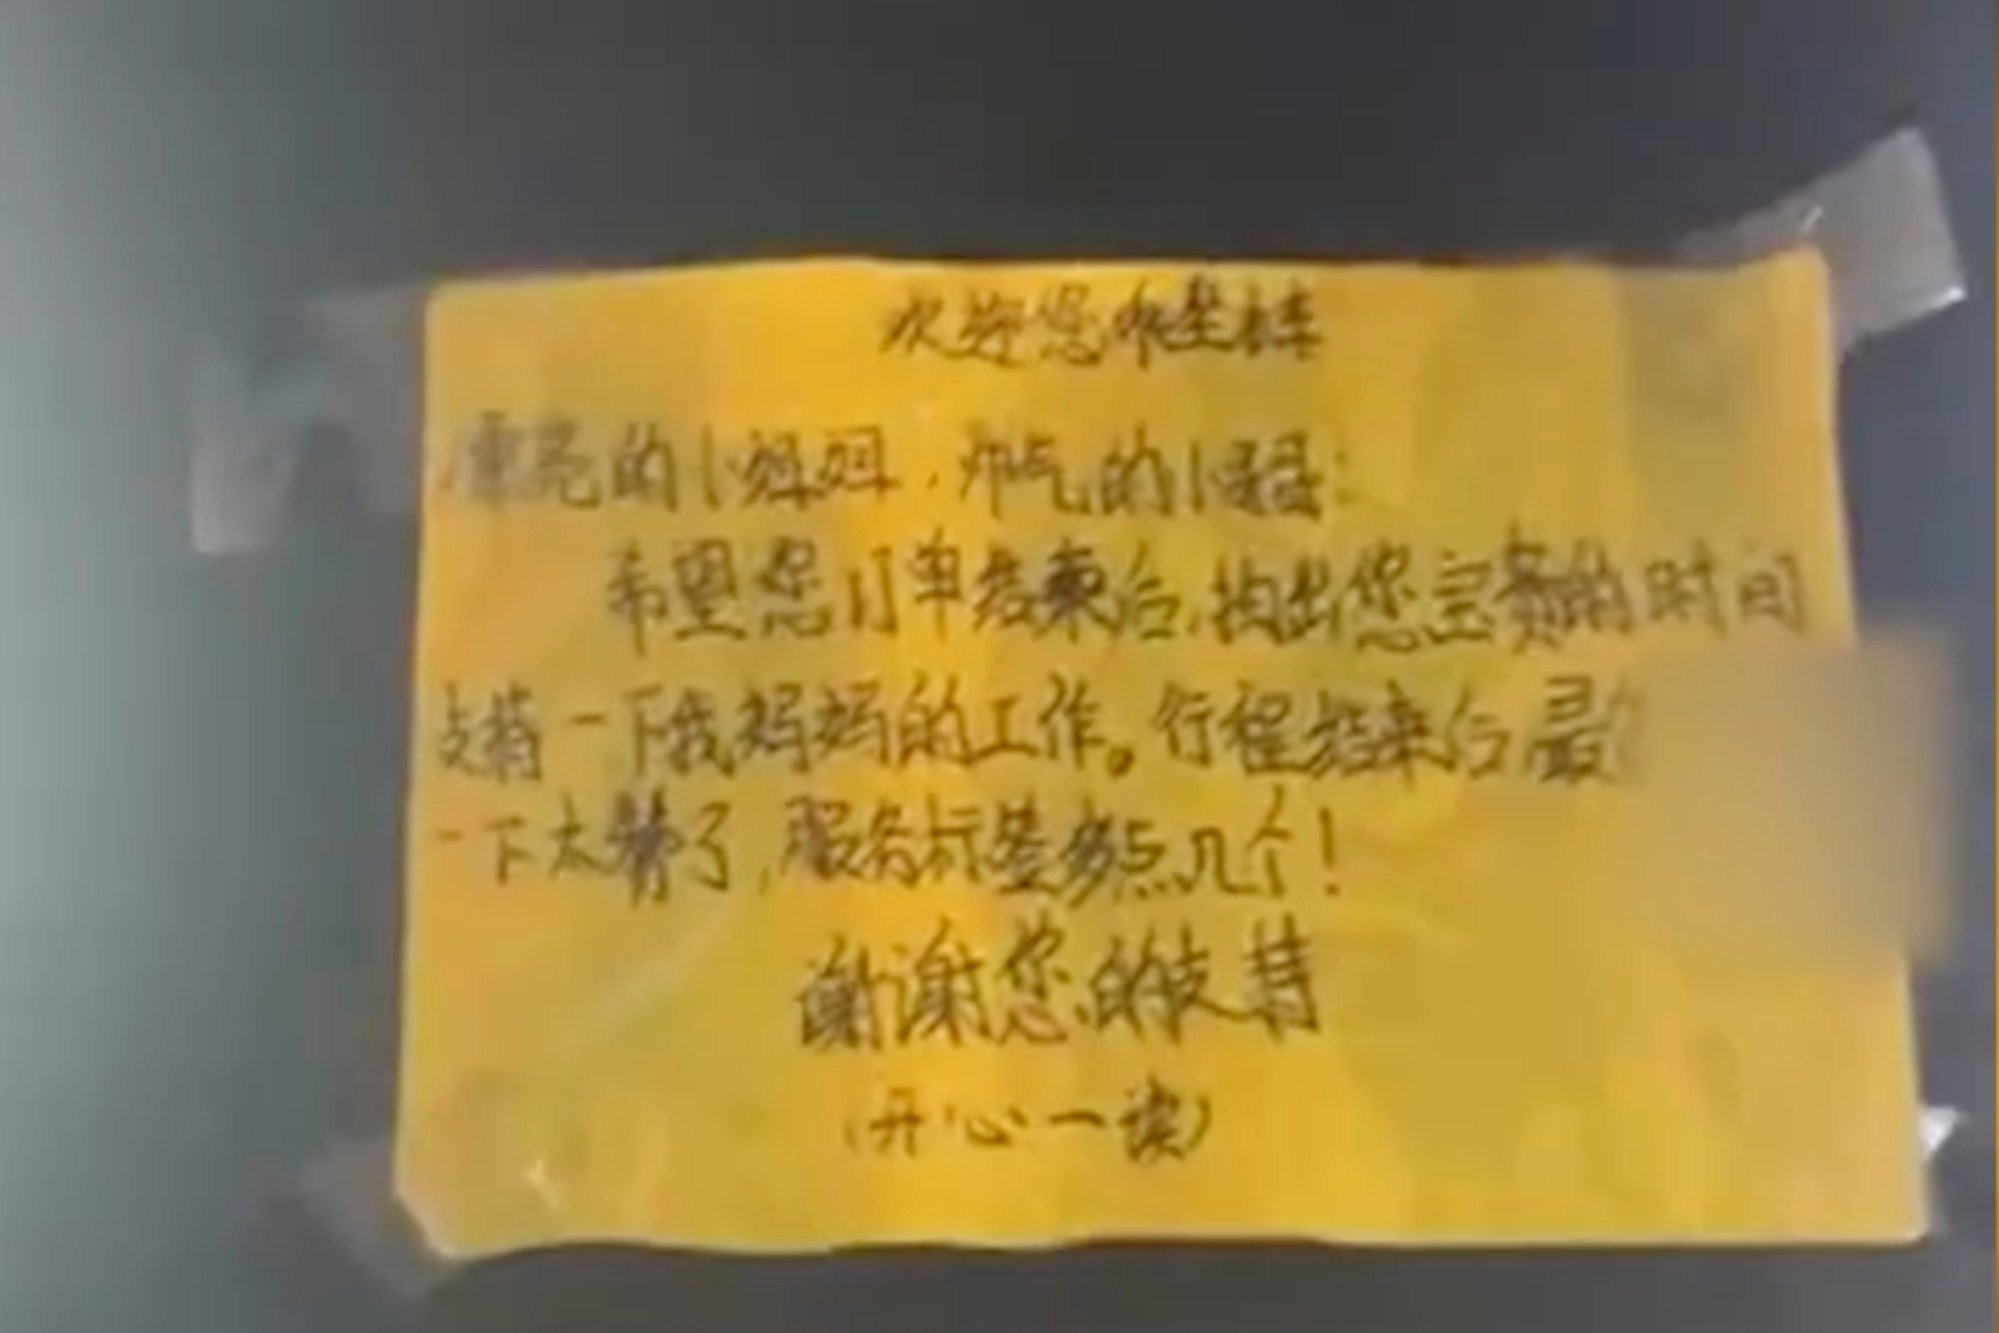 欢迎您乘坐本车
漂亮的小姐姐，帅气的小哥哥：
希望您订单结束后，抽出您宝贵的时间
支持一下我妈妈的工作。行程结束后最
一下太棒了，服务标签多点几个！
谢谢您的支持
（开心一读）